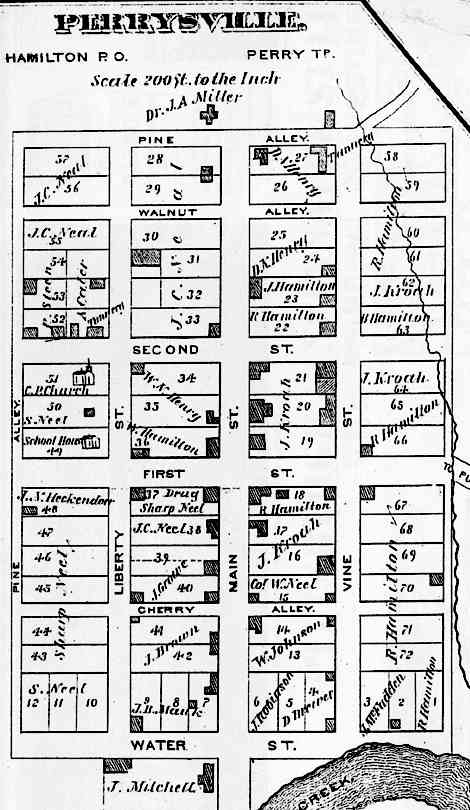 PERRYSVILLE.
HAMILTON P.O. PERRY TP.
Scale 200 ft. to the Inch
Dr. J.A Miller
PINE ALLEY.
57 28 27 Tannery 58
J.C. Neal R. Henry
56 29 26 59
WALNUT ALLEY.
J.C. Neal 30 25 60
55 D.K. Henry R. Hamilton
54 31 24 61
53 32 J. Hamilton 62
23 J. Kroah
52 33 R Hamilton R Hamilton
Tannery J. C. Neal 22 63
SECOND ST.
51 34 21 J. Kroah
C.P. Church W.K. Henry 64
50 35 20 65
S. Neel J. Kroah R Hamilton
School House W. Hamilton
49 36 19 66
FIRST ST.
J.N. Heckendorn 37 Drug 18
48 Sharp Neel R Hamilton 67
47 J.C. Neel 38 17 68
46 39 J. Kroah 16 69
45 40 Col W. Neel 70
Sharp Neel J. Growe 15 R. Hamilton
CHERRY ALLEY.
44 41 14 71
J. Brown W. Johnson
43 42 13 72
S. Neel
12 11 10 9 8 7 6 5 4 3 2 1
J.B. Mauk J. Robinson R Hamilton
WATER ST.
J. Mitchell
CREEK
PINE ALLEY
LIBERTY ST.
MAIN ST.
VINE ST.
TO